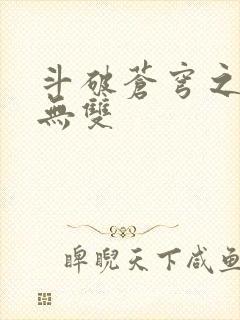 斗破蒼穹之
無雙
睥睨天下咸鱼